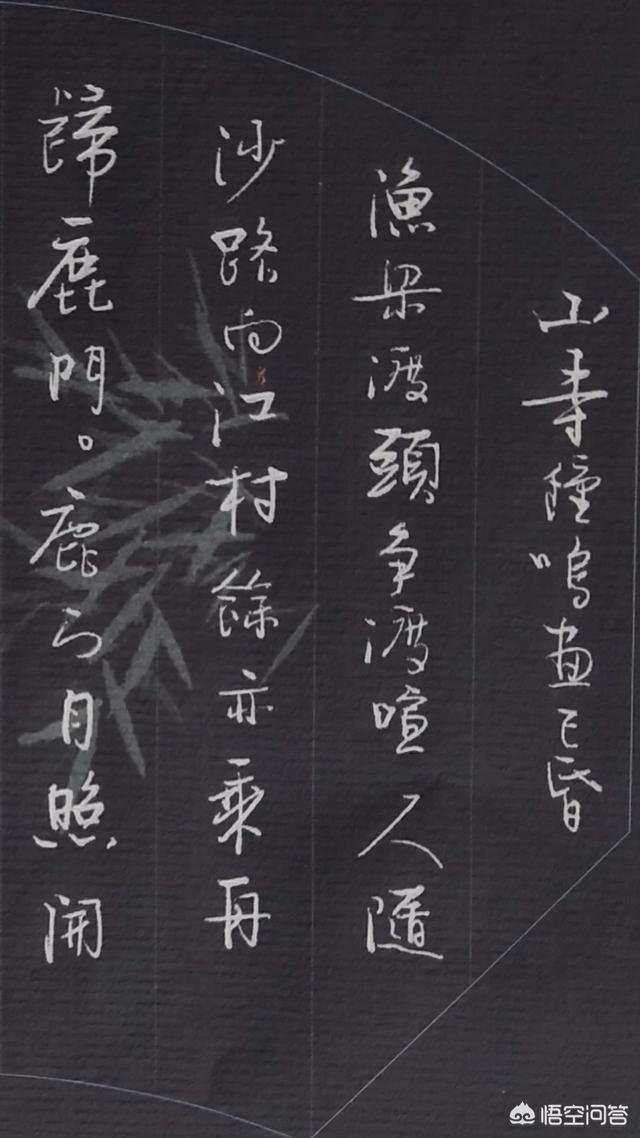 山寺鐘鳴晝已昏
漁梁渡頭争渡喧人隨
沙路向江村餘亦乘舟
歸鹿門。鹿门月照開
悟空问答